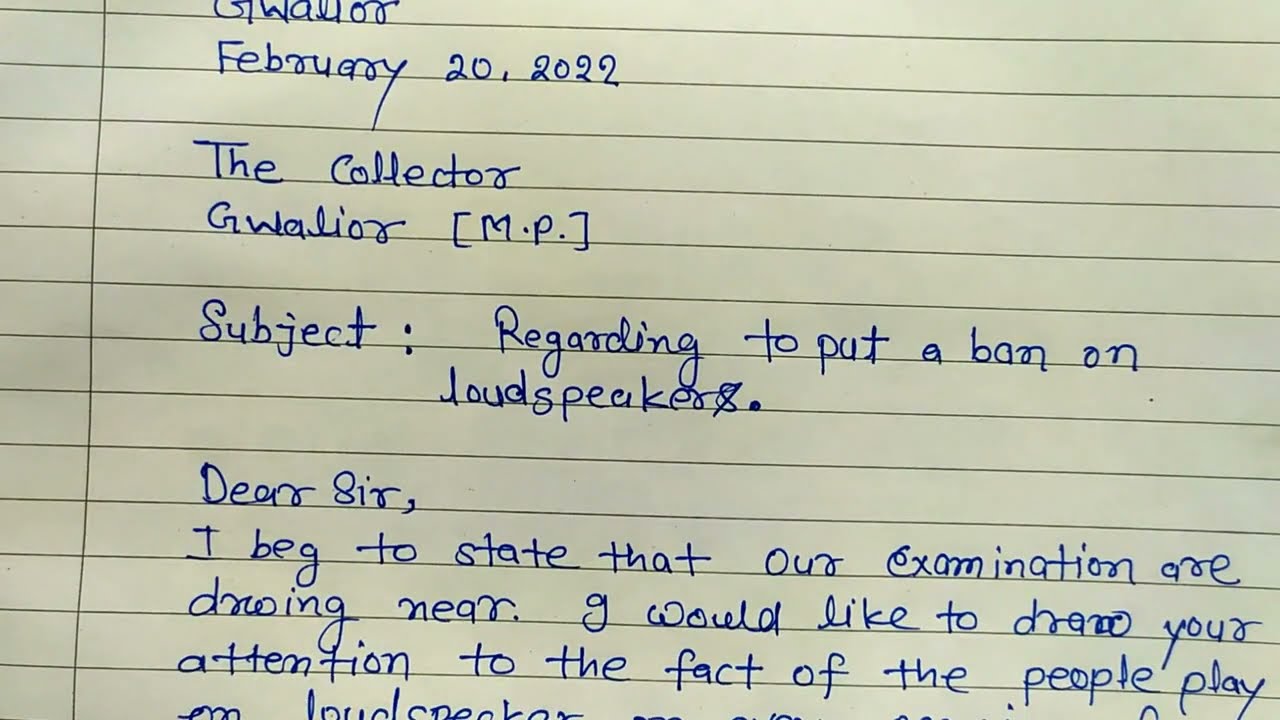 Gwalior
February 20, 2022
The Collector
Gwalior [M.P.]
Subject : Regarding to put a ban on
loudspeakers.
Dear Sir,
I beg to state that our examination are
drwing near. I would like to draw your
attention to the fact of the people play
loudspeaker